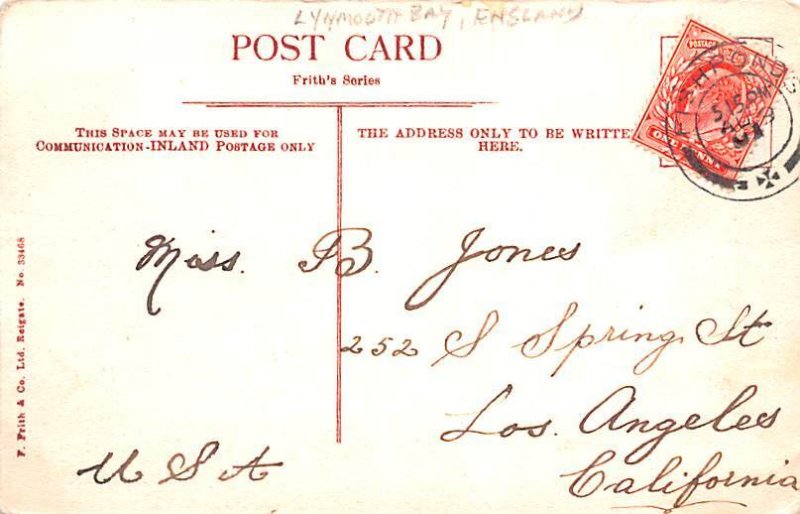 LYNMOUTH BAY, ENGLAND
POST CARD
Frith's Series
THIS SPACE MAY BE USED FOR
COMMUNICATION-INLAND POSTAGE ONLY
THE ADDRESS ONLY TO BE WRITTE
HERE.
POSTAGE
ONE PENNY
FISHPONDS
5 15 PM
Miss. B. Jones
252 S Spring St
Los. Angeles
California
U S A
F. Frith & Co. Ltd. Reigate. No. 33468